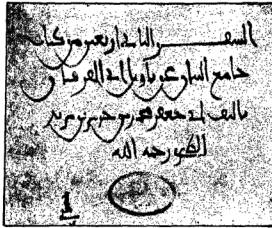 السفر الثاني واربعين من كتاب
جامع البيان عن تاويل اي الفرقان
تاليف ابي جعفر محمد بن جرير بن يزيد
الطبري رحمه الله